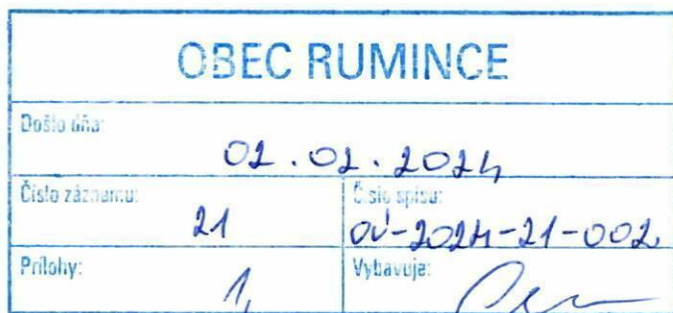 OBEC RUMINCE
Došlo dňa:
02.02.2024
Číslo záznamu:
21
Číslo spisu:
OÚ-2024-21-002
Prílohy:
1,
Vybavuje: